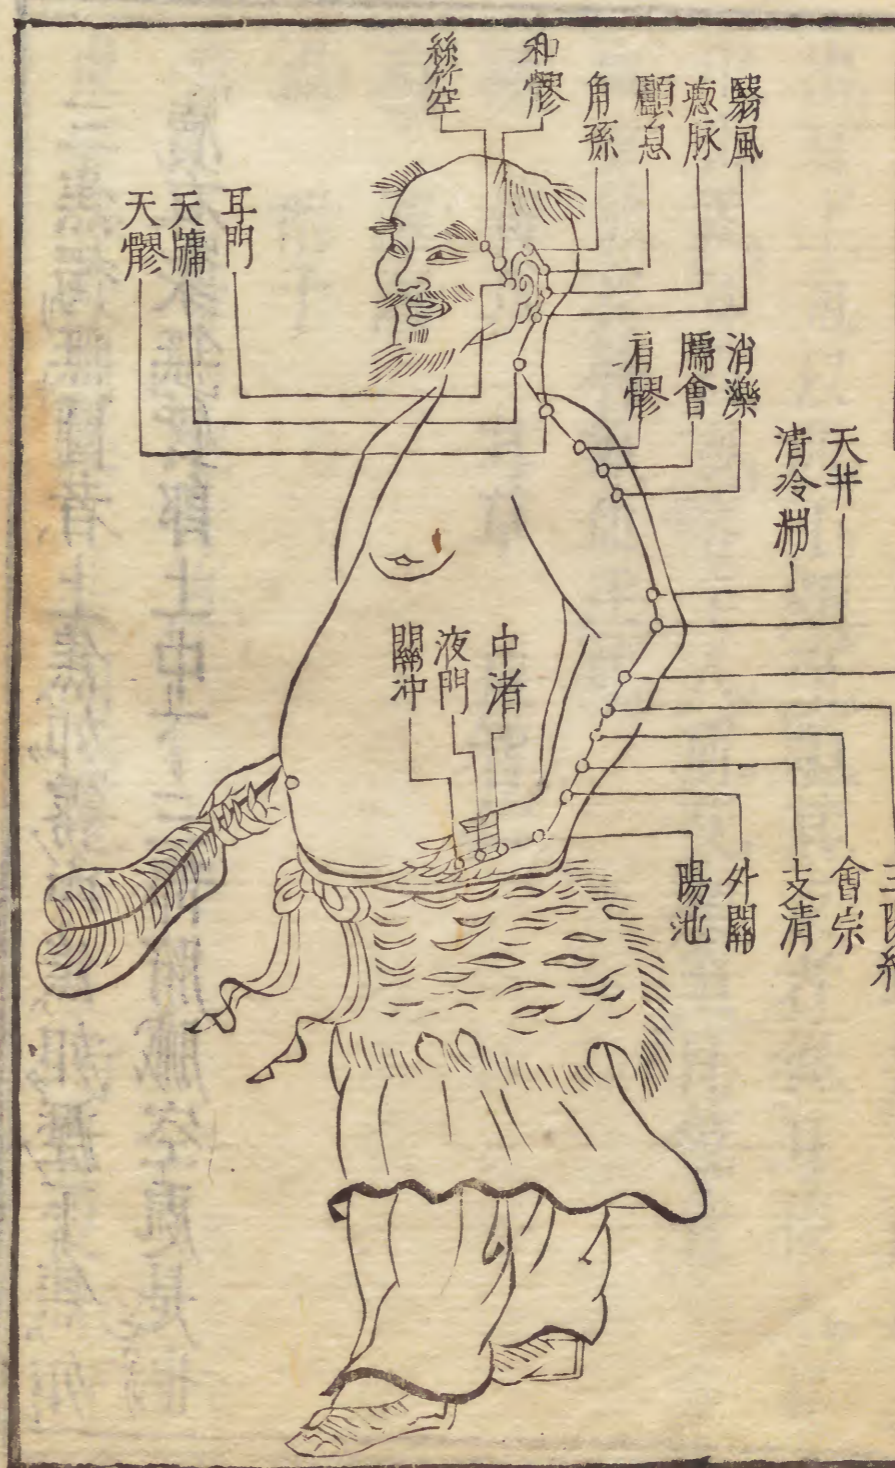 翳風
瘛脉
顱息
角孫
和髎
絲竹空
耳門
天牖
天髎
消濼
臑會
肩髎
天井
清冷淵
中渚
液門
關冲
三陽絡
會宗
支清
外關
陽池